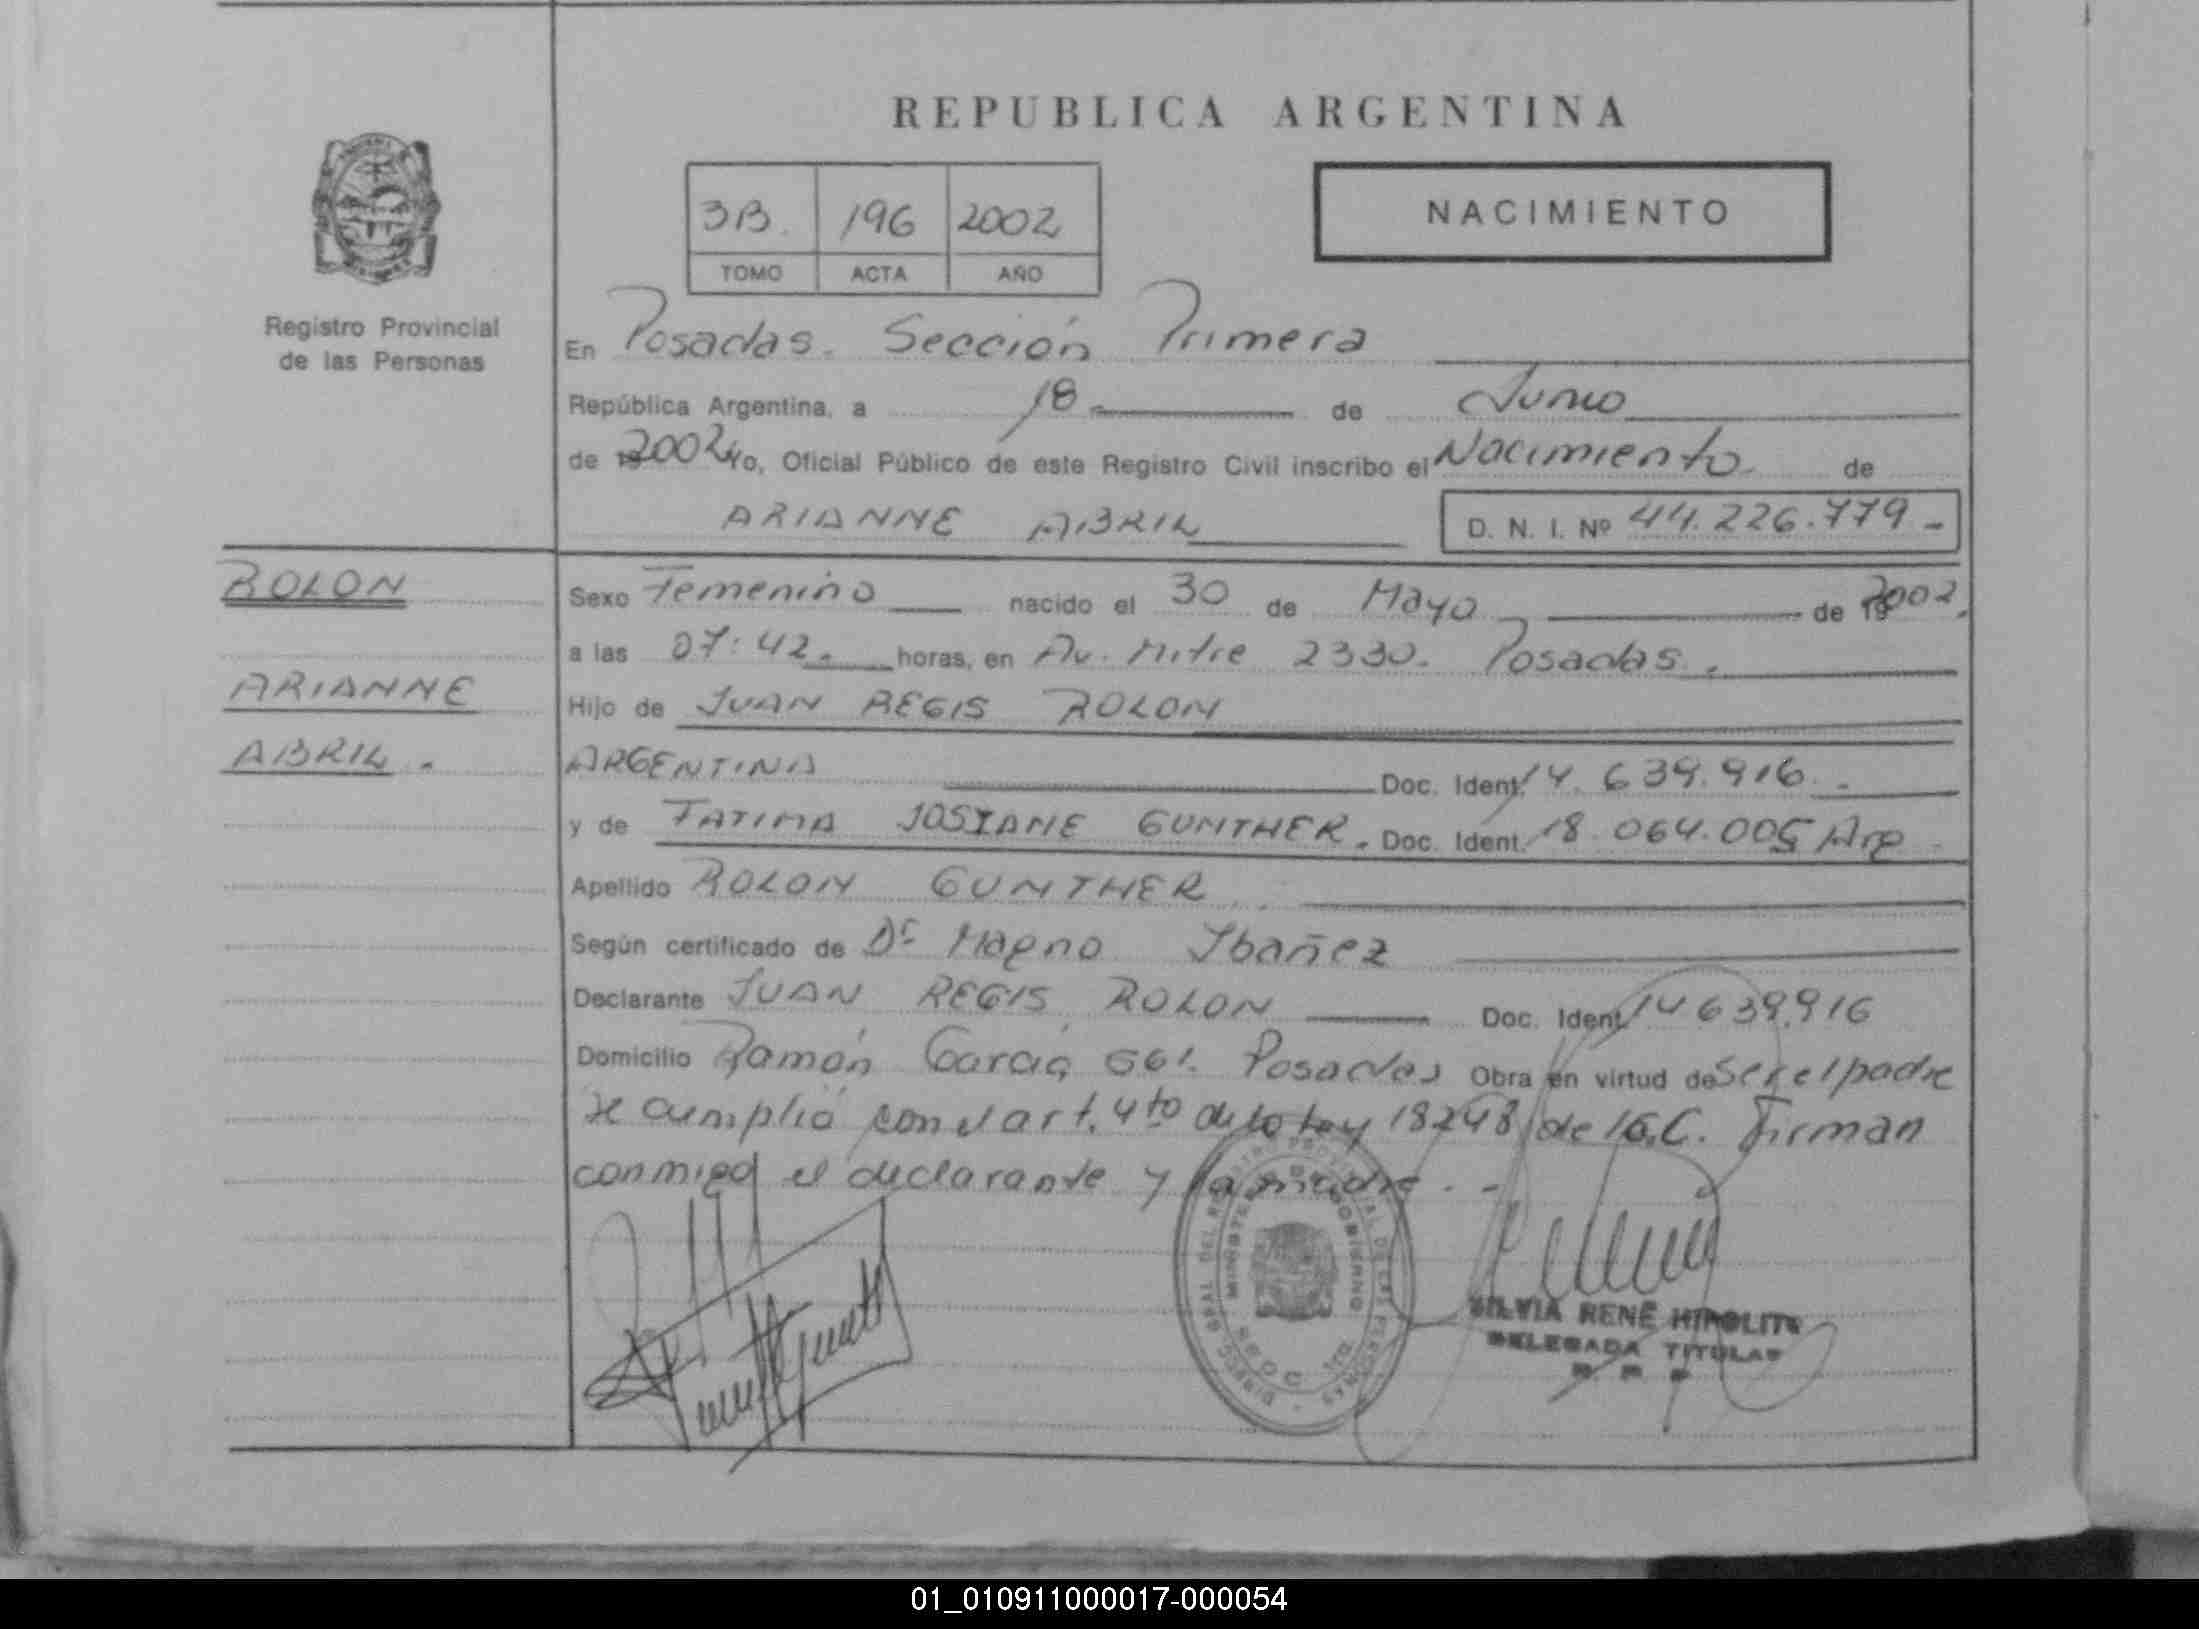 REPUBLICA ARGENTINA
3B. 196 2002
TOMO ACTA AÑO
NACIMIENTO
Registro Provincial
de las Personas
En Posadas. Sección Primera
República Argentina, a 18 de Junio
de 2002 Yo, Oficial Público de este Registro Civil inscribo el Nacimiento de
ARIANNE ABRIL
D. N. I. Nº 44.226.779-
ROLON
ARIANNE
ABRIL.
Sexo Femenino nacido el 30 de Mayo de 2002.
a las 07:42. horas, en Av. Mitre 2330. Posadas.
Hijo de JUAN REGIS ROLON
ARGENTINA Doc. Ident. 14.639.916.
y de FATIMA JOSIANE GUNTHER. Doc. Ident. 18.064.005 Arg
Apellido ROLON GUNTHER
Según certificado de Dr Magno Ibañez
Declarante JUAN REGIS ROLON Doc. Ident. 14639.916
Domicilio Ramón García 661. Posadas Obra en virtud de Ser el padre
se cumplió con el art. 4to de la Ley 18248 de Firman
conmigo el declarante y la madre. -
MINISTERIO DE GOBIERNO
SILVIA RENÉ HIPOLITO
DELEGADA TITULAR
01_010911000017-000054